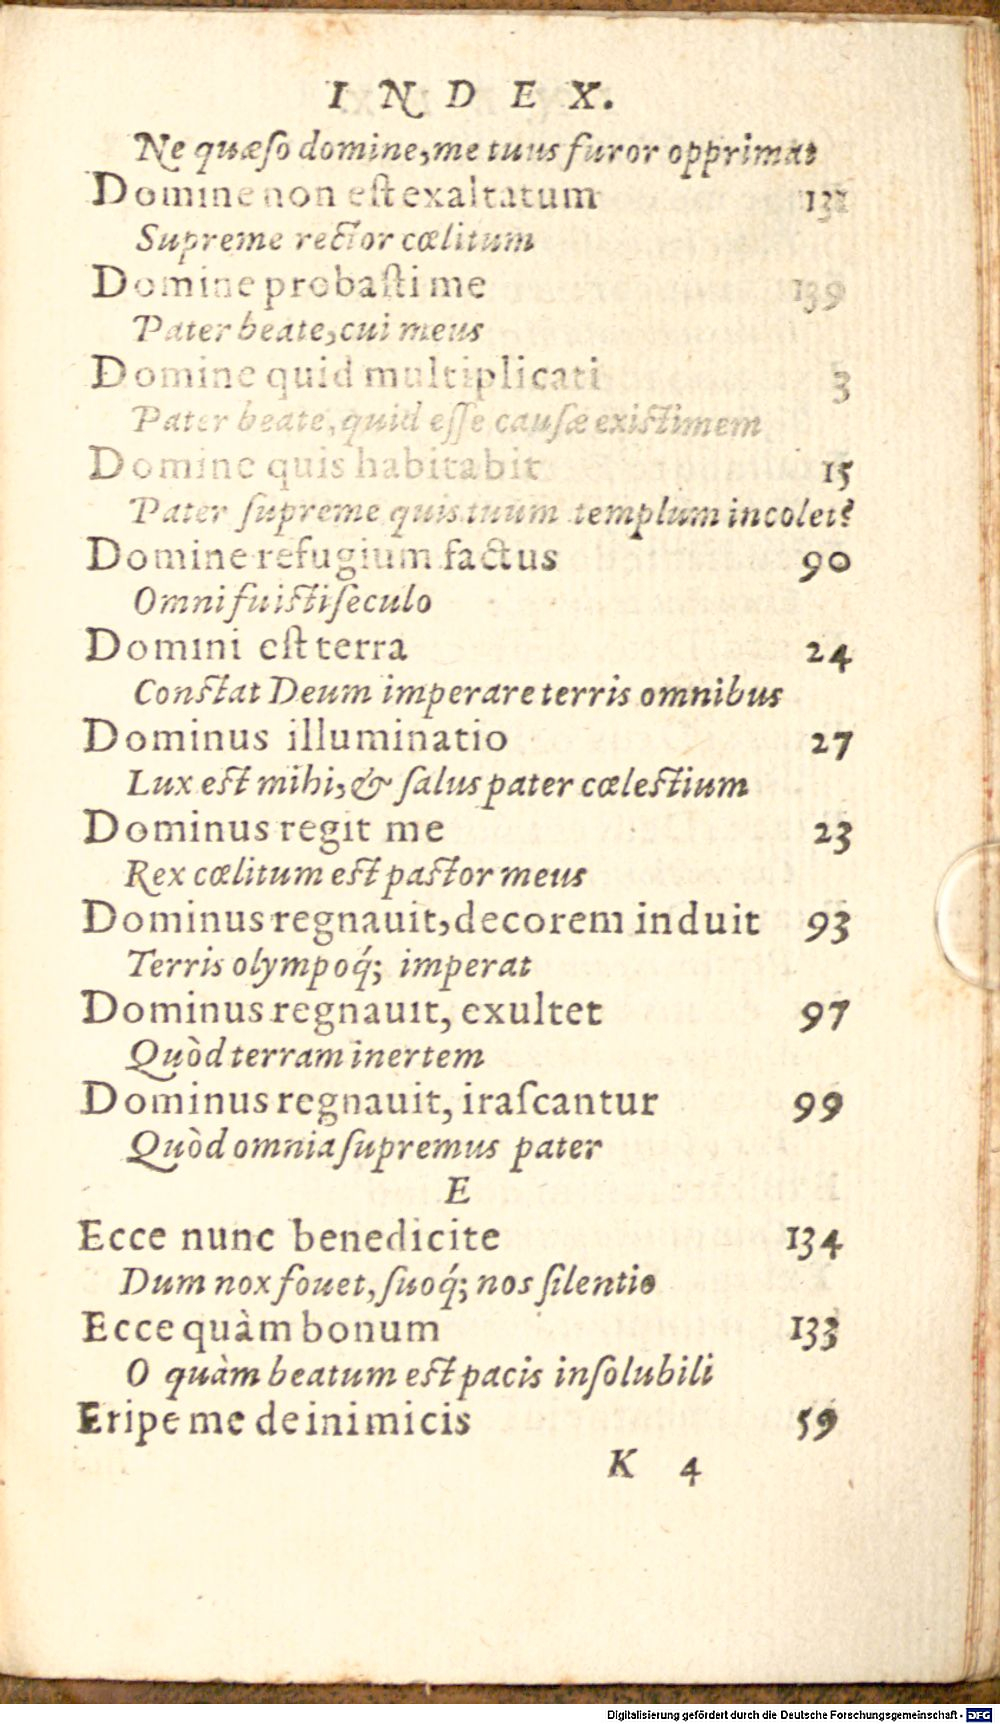 INDEX.
Ne quæſo domine, me tuus furor opprimat
Domine non eſt exaltatum 131
Supreme rector cœlitum
Domine probaſti me 139
Pater beate, cui meus
Domine quid multiplicati 3
Pater beate, quid eſſe cauſæ exiſtimem
Domine quis habitabit 15
Pater ſupreme quis tuum templum incolet?
Domine refugium factus 90
Omni fuiſti ſeculo
Domini eſt terra 24
Conſtat Deum imperare terris omnibus
Dominus illuminatio 27
Lux eſt mihi, & ſalus pater cœleſtium
Dominus regit me 23
Rex cœlitum eſt paſtor meus
Dominus regnauit, decorem induit 93
Terris olympoq́; imperat
Dominus regnauit, exultet 97
Quòd terram inertem
Dominus regnauit, iraſcantur 99
Quòd omnia ſupremus pater
E
Ecce nunc benedicite 134
Dum nox fouet, ſuoq́; nos ſilentio
Ecce quàm bonum 133
O quàm beatum eſt pacis inſolubili
Eripe me de inimicis 59
K 4
Digitalisierung gefördert durch die Deutsche Forschungsgemeinschaft - DFG